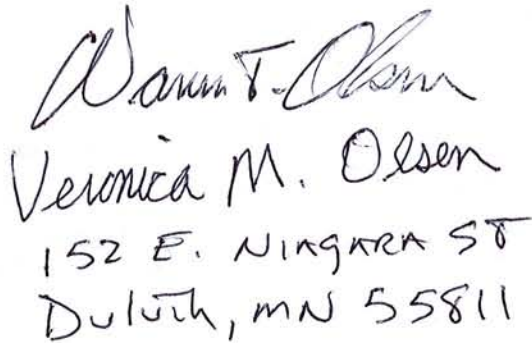 Warren T. Olsen
Veronica M. Olsen
152 E. NIAGARA ST
Duluth, MN 55811